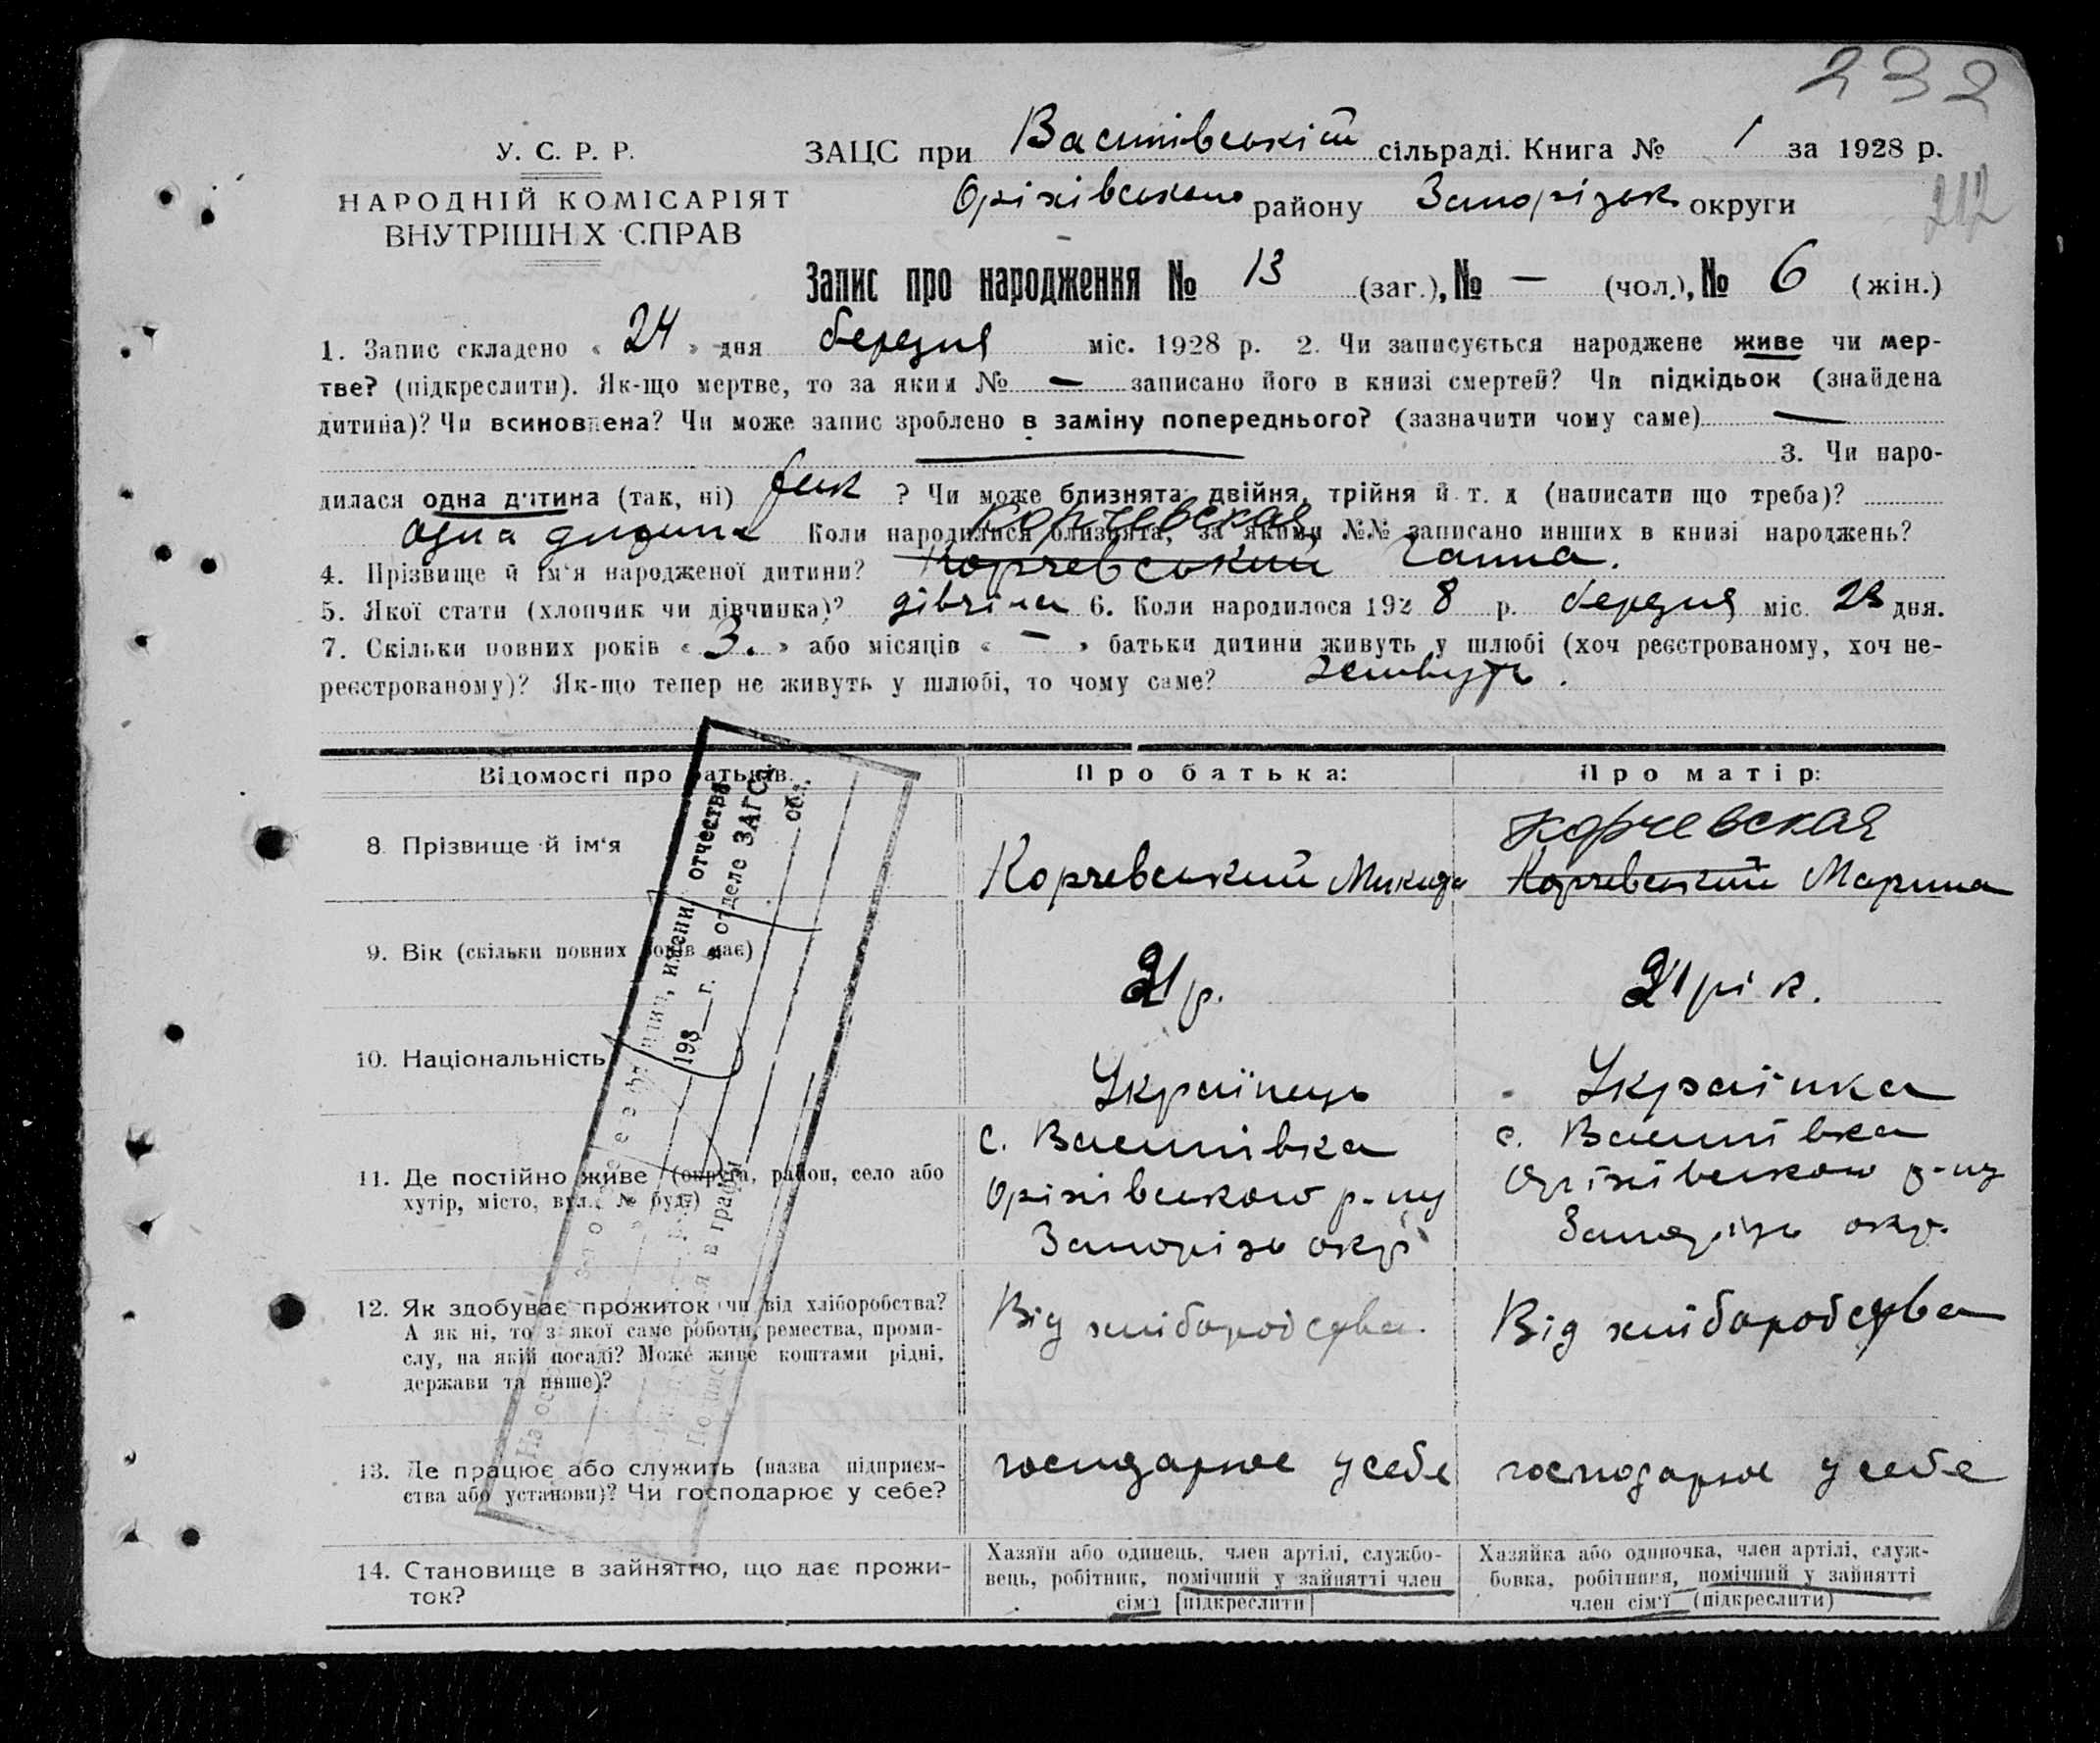 232
У. С. Р. Р.
НАРОДНІЙ КОМІСАРІЯТ
ВНУТРІШНІХ СПРАВ
ЗАЦС при Василівській сільраді. Книга № 1 за 1928 р.
Оріхівського району Запорізьк. округи
212
Запис про народження № 13 (заг.), № — (чол.), № 6 (жін.)
1. Запис складено « 24 » дня березня міс. 1928 р. 2. Чи записується народжене живе чи мер-
тве? (підкреслити). Як-що мертве, то за яким № — записано його в книзі смертей? Чи підкідьок (знайдена
дитина)? Чи всиновлена? Чи може запис зроблено в заміну попереднього? (зазначити чому саме) —
3. Чи наро-
дилася одна дитина (так, ні) так ? Чи може близнята: двійня, трійня й т. д (написати що треба)?
одна дитина Коли народилися близнята, за якими №№ записано инших в книзі народжень?
Корчевская
4. Прізвище й ім'я народженої дитини? Корчевський Ганна.
5. Якої стати (хлопчик чи дівчинка)? дівчина 6. Коли народилося 1928 р. березня міс. 23 дня.
7. Скільки повних років « 3. » або місяців « — » батьки дитини живуть у шлюбі (хоч реєстрованому, хоч не-
реєстрованому)? Як-що тепер не живуть у шлюбі, то чому саме? живуть.
Відомості про батьків Про батька: Про матір:
Корчевская
8 Прізвище й ім'я Корчевський Микида Корчевський Марина
9. Вік (скільки повних років має) 21 р. 21 рік.
10. Національність Українець Українка
11. Де постійно живе (округа, район, село або
хутір, місто, вул., № буд.)
с. Василівка
Оріхівського р-ну
Запорізь окр
с. Василівка
Оріхівського р-ну
Запорізь окр.
12. Як здобуває прожиток чи від хліборобства?
А як ні, то з якої саме роботи, ремества, проми-
слу, на якій посаді? Може живе коштами рідні,
держави та инше)?
Від хліборобства.
Від хліборобства
13. Де працює або служить (назва підприєм-
ства або установи)? Чи господарює у себе?
господарює у себе
господарює у себе
14. Становище в зайнятто, що дає прожи-
ток?
Хазяїн або одинець, член артілі, службо-
вець, робітник, помічний у зайнятті член
сім'ї [підкреслити]
Хазяйка або одиночка, член артілі, служ-
бовка, робітниця, помічний у зайнятті
член сім'ї (підкреслити)
имени, отчества
198 г. в отделе ЗАГС
обл.
в графы